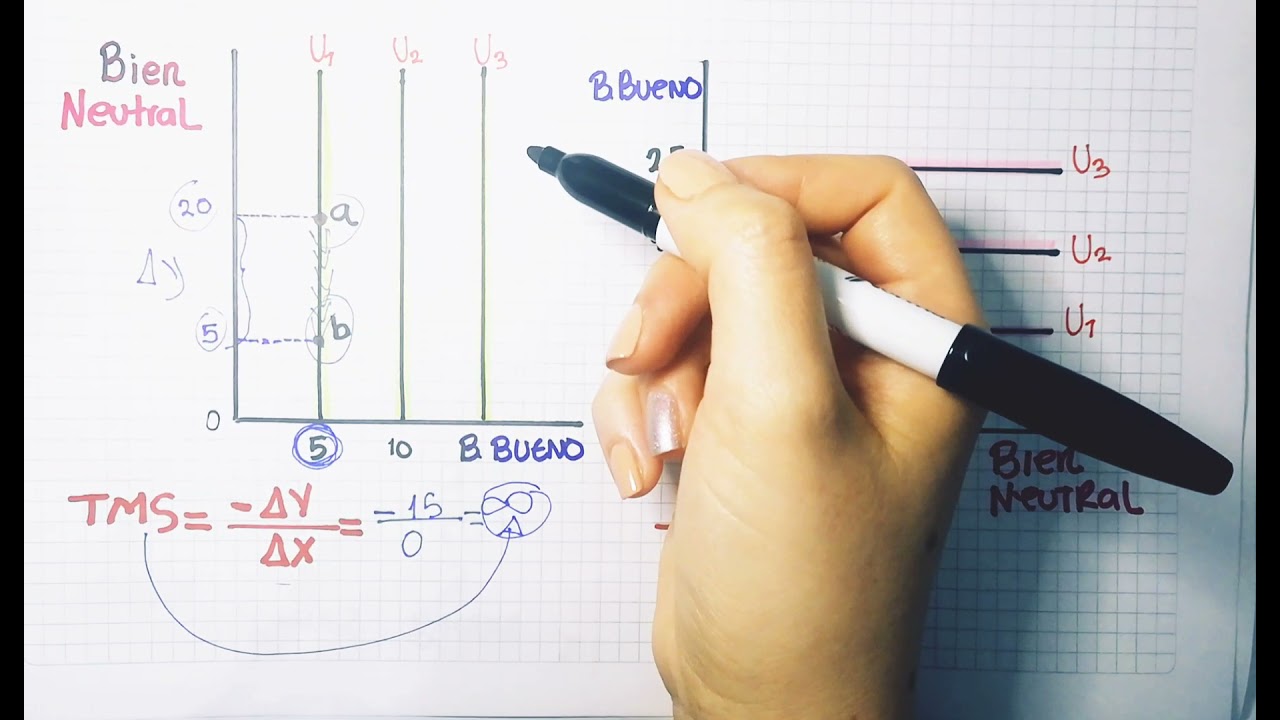 Bien
Neutral
U1 U2 U3
20
a
Δy
5
b
0
5 10 B. BUENO
TMS = -ΔY/ΔX = -15/0 = ∞
B. BUENO
U3
U2
U1
Bien
NEUTRAL